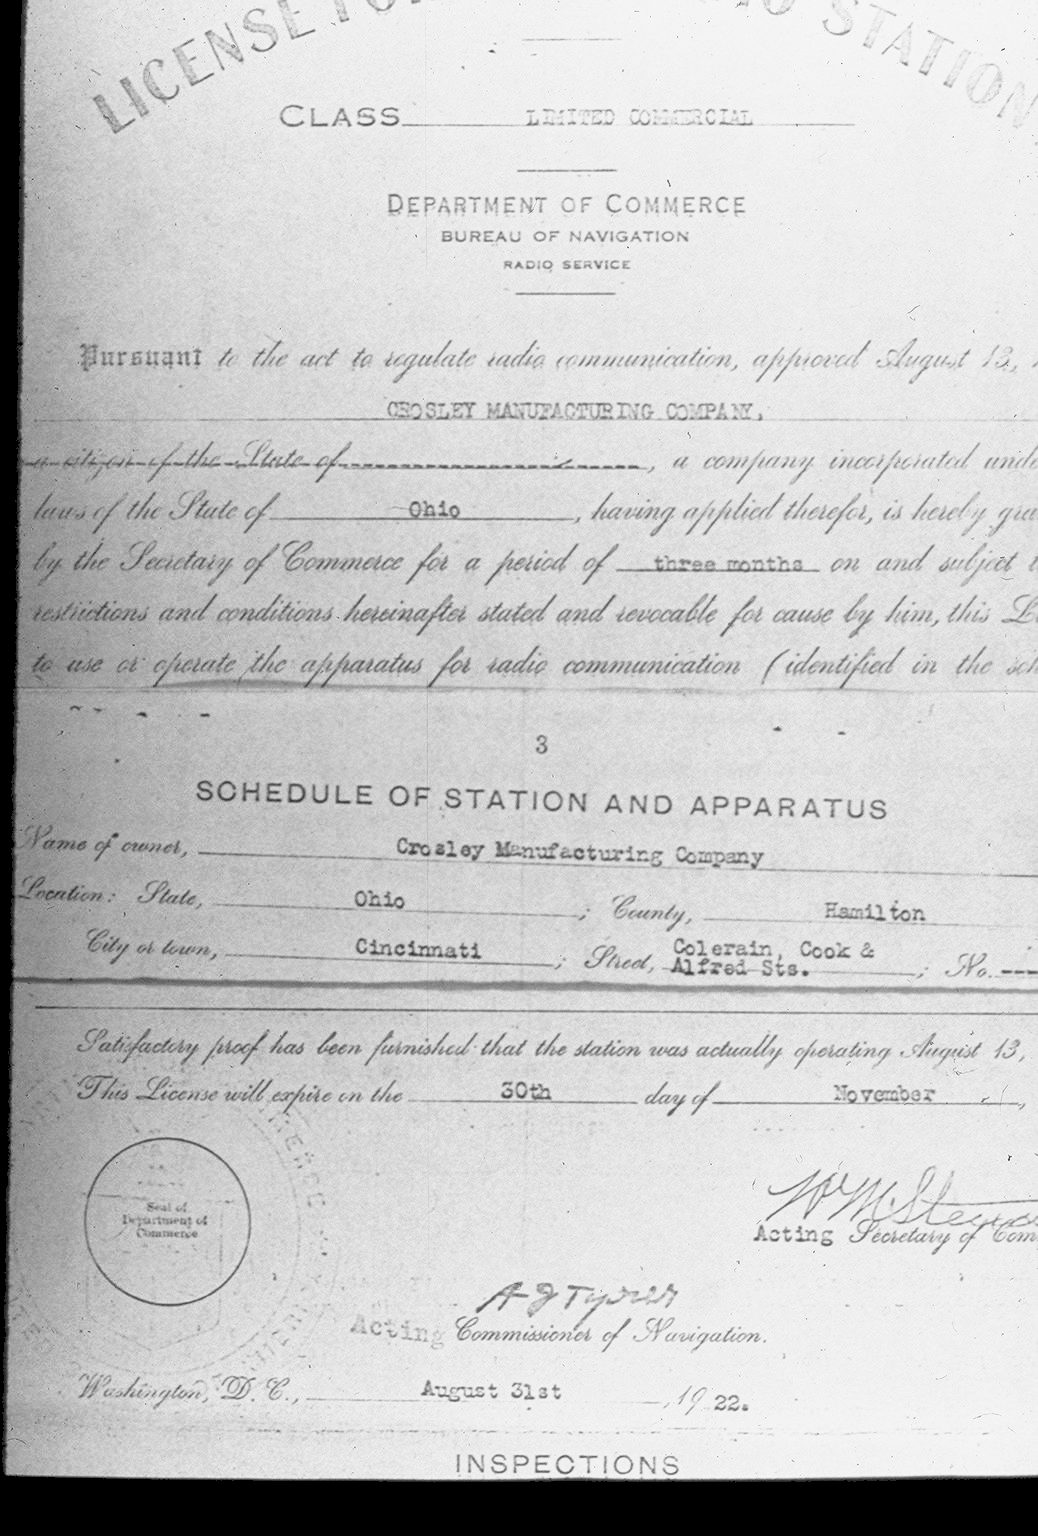 LICENSE FO STATION
CLASS LIMITED COMMERCIAL
DEPARTMENT OF COMMERCE
BUREAU OF NAVIGATION
RADIO SERVICE
Pursuant to the act to regulate radio communication, approved August 13,
CROSLEY MANUFACTURING COMPANY,
a citizen of the State of , a company incorporated unde
laws of the State of Ohio , having applied therefor, is hereby gra
by the Secretary of Commerce for a period of three months on and subject t
restrictions and conditions hereinafter stated and revocable for cause by him, this L
to use or operate the apparatus for radio communication (identified in the sch
3
SCHEDULE OF STATION AND APPARATUS
Name of owner, Crosley Manufacturing Company
Location: State, Ohio ; County, Hamilton
City or town, Cincinnati ; Street, Colerain, Cook &
Alfred Sts. ; No. ---
Satisfactory proof has been furnished that the station was actually operating August 13,
This License will expire on the 30th day of November ,
Seal of
Department of
Commerce
Acting Secretary of Com
Acting Commissioner of Navigation.
Washington, D. C., August 31st , 19 22.
INSPECTIONS